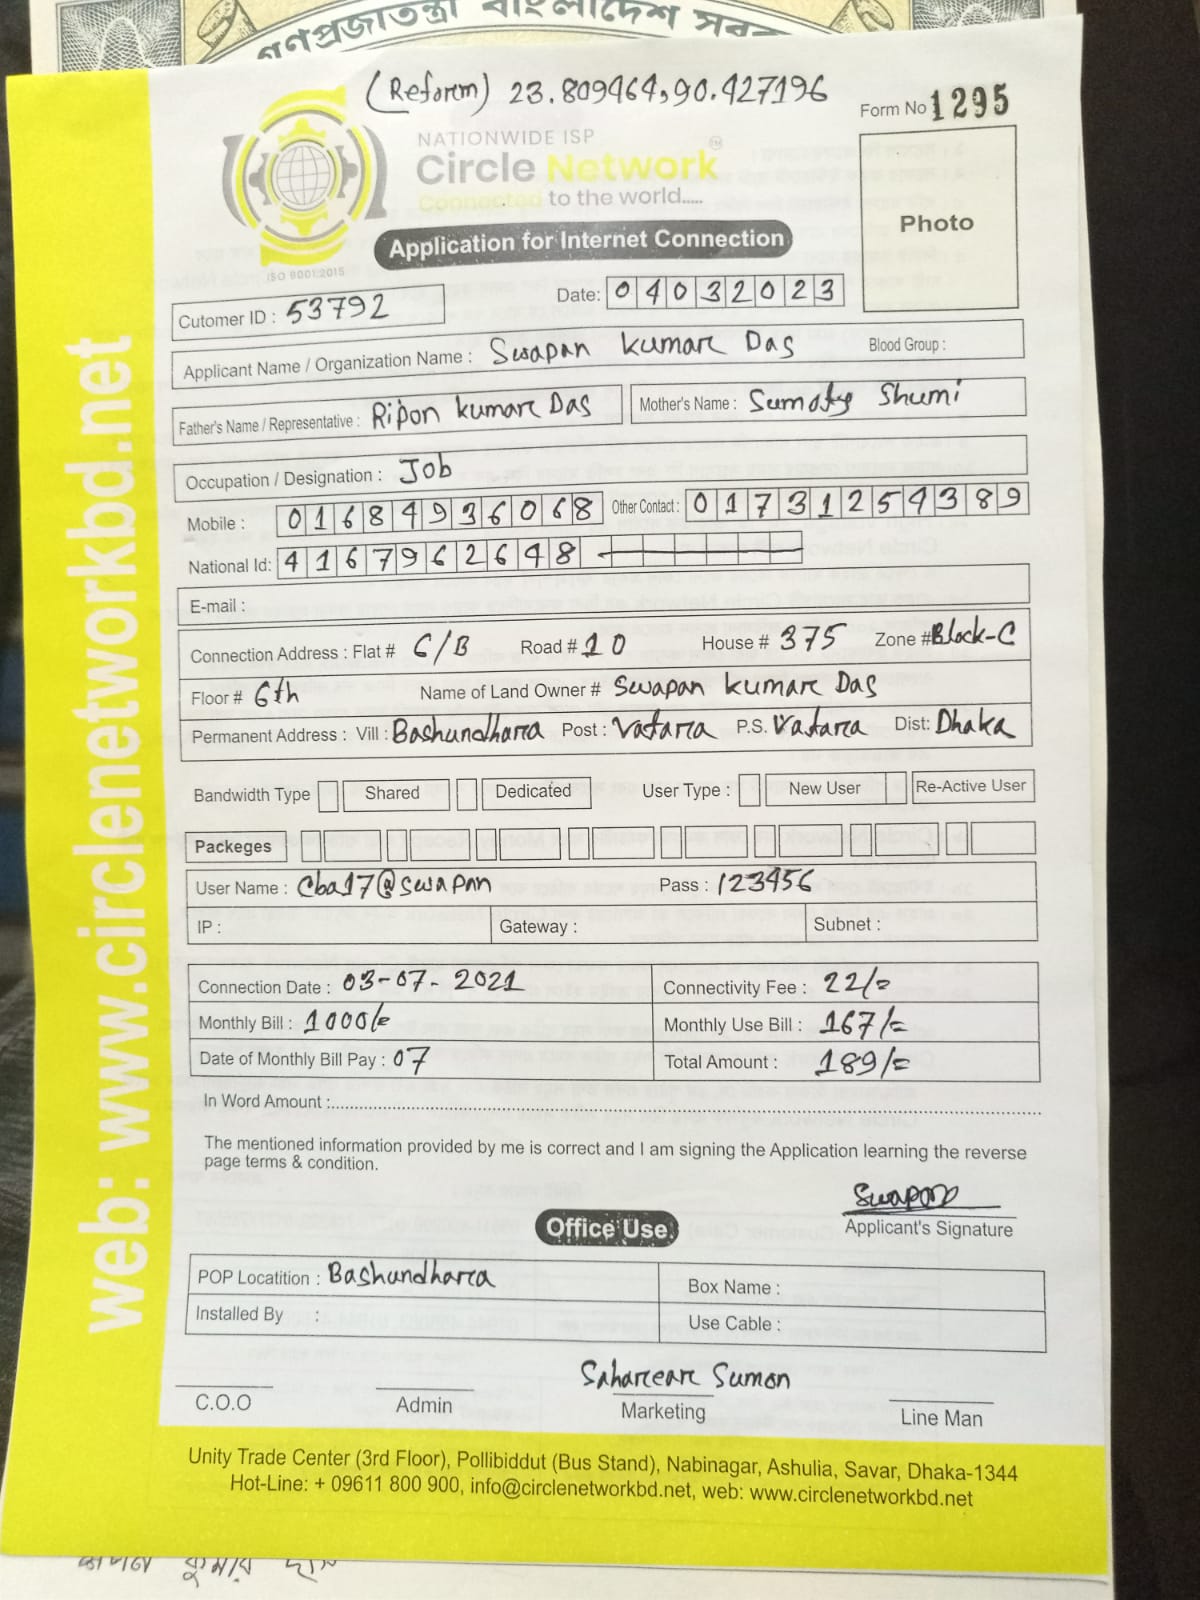 গণপ্রজাতন্ত্রী বাংলাদেশ
(Reform) 23.809464,90.427196
Form No 1295
NATIONWIDE ISP
Circle Network
TM
Connected to the world.....
Photo
Application for Internet Connection
ISO 9001:2015
Cutomer ID : 53792
Date: 04032023
Applicant Name / Organization Name : Swapan Kumar Das Blood Group :
Father's Name / Representative : Ripon Kumar Das Mother's Name : Sumoty Shumi
Occupation / Designation : Job
Mobile : 01684936068 Other Contact : 01731254389
National Id: 4167962648
E-mail :
Connection Address : Flat # C/B Road # 10 House # 375 Zone # Block-C
Floor # 6th Name of Land Owner # Swapan Kumar Das
Permanent Address : Vill : Bashundhara Post : Vatara P.S. Vatara Dist: Dhaka
Bandwidth Type Shared Dedicated User Type : New User Re-Active User
Packeges
User Name : Cba17@swapan Pass : 123456
IP : Gateway : Subnet :
Connection Date : 03-07-2021 Connectivity Fee : 22/=
Monthly Bill : 1000/= Monthly Use Bill : 167/=
Date of Monthly Bill Pay : 07 Total Amount : 189/=
In Word Amount :
The mentioned information provided by me is correct and I am signing the Application learning the reverse
page terms & condition.
Swapan
Applicant's Signature
Office Use
POP Locatition : Bashundhara Box Name :
Installed By : Use Cable :
Sahareare Sumon
C.O.O Admin Marketing Line Man
Unity Trade Center (3rd Floor), Pollibiddut (Bus Stand), Nabinagar, Ashulia, Savar, Dhaka-1344
Hot-Line: + 09611 800 900, info@circlenetworkbd.net, web: www.circlenetworkbd.net
web: www.circlenetworkbd.net